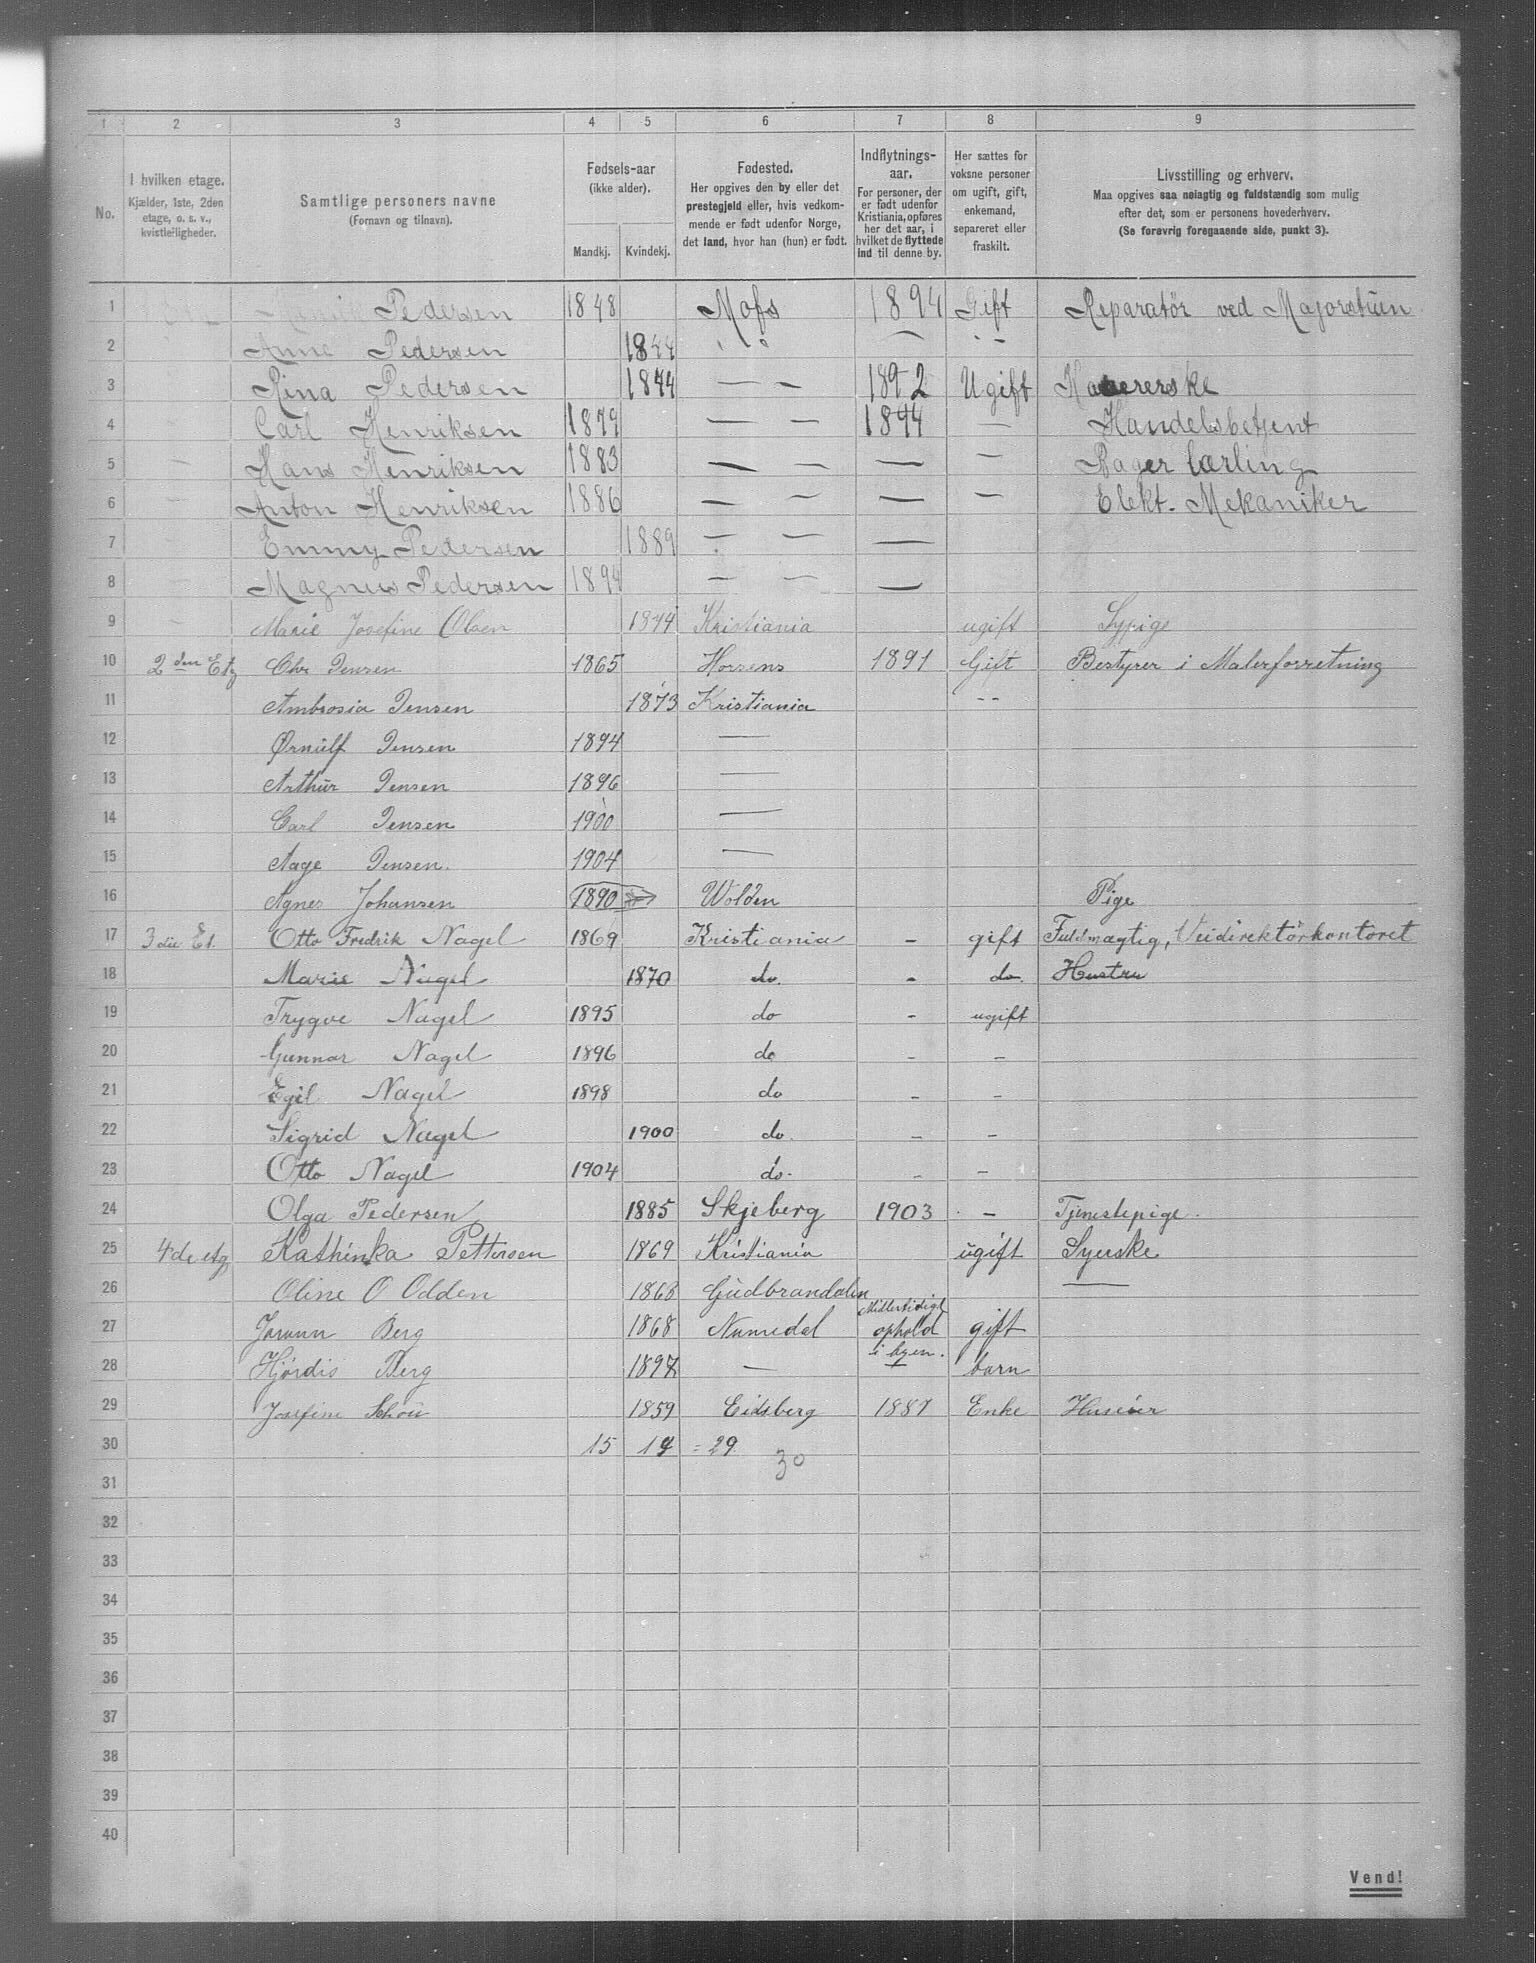 1 2 3 4 5 6 7 8 9
No.
I hvilken etage.
Kjælder, 1ste, 2den
etage, o. s. v.,
kvistleiligheder.
Samtlige personers navne
(Fornavn og tilnavn).
Fødsels-aar
(ikke alder).
Mandkj. Kvindekj.
Fødested.
Her opgives den by eller det
prestegjeld eller, hvis vedkom-
mende er født udenfor Norge,
det land, hvor han (hun) er født.
Indflytnings-
aar.
For personer, der
er født udenfor
Kristiania, opføres
her det aar, i
hvilket de flyttede
ind til denne by.
Her sættes for
voksne personer
om ugift, gift,
enkemand,
separeret eller
fraskilt.
Livsstilling og erhverv.
Maa opgives saa nøiagtig og fuldstændig som mulig
efter det, som er personens hovederhverv.
(Se forøvrig foregaaende side, punkt 3).
1 Pedersen 1848 Moss 1894 Gift Reparatör ved Majorstuen
2 Anne Pedersen 1844 " " — " "
3 Rina Pedersen 1844 — — 1892 Ugift
4 Carl Henriksen 1879 — — 1894 — Handelsbetjent
5 — Hans Henriksen 1883 — — — — Bager lærling
6 — Anton Henriksen 1886 — — — — Elekt. Mekaniker
7 — Emmy Pedersen 1889 — — —
8 — Magnus Pedersen 1894 — — —
9 — Marie Josefine Olsen 1874 Kristiania ugift Sypige
10 2den Etg Chr Jensen 1865 Horsens 1891 Gift Bestyrer i Malerforretning
11 Ambrosia Jensen 1873 Kristiania - -
12 Ørnulf Jensen 1894 —
13 Arthur Jensen 1896 —
14 Carl Jensen 1900 —
15 Aage Jensen. 1904 —
16 Agnes Johansen 1890 Wolden Pige
17 3die Et. Otto Fredrik Nagel 1869 Kristiania - gift Fuldmægtig, Veidirektörkontoret
18 Marie Nagel 1870 do. - do. Hustru
19 Trygve Nagel 1895 do - ugift
20 Gunnar Nagel 1896 do - -
21 Egil Nagel 1898 do - -
22 Sigrid Nagel 1900 do. - -
23 Otto Nagel 1904 do. - -
24 Olga Pedersen 1885 Skjeberg 1903 - Tjenestepige.
25 4de etg Kathinka Pettersen 1869 Kristiania ugift Syerske
26 Oline O Odden 1868 Gudbrandalen —
27 Jorunn Berg 1868 Numedal Midlertidigt ophold i byen. gift
28 Hjördis Berg 1897 — — barn
29 Josefine Schou 1859 Eidsberg 1887 Enke Huseier
30 15 14 = 29
30
31
32
33
34
35
36
37
38
39
40
Vend!